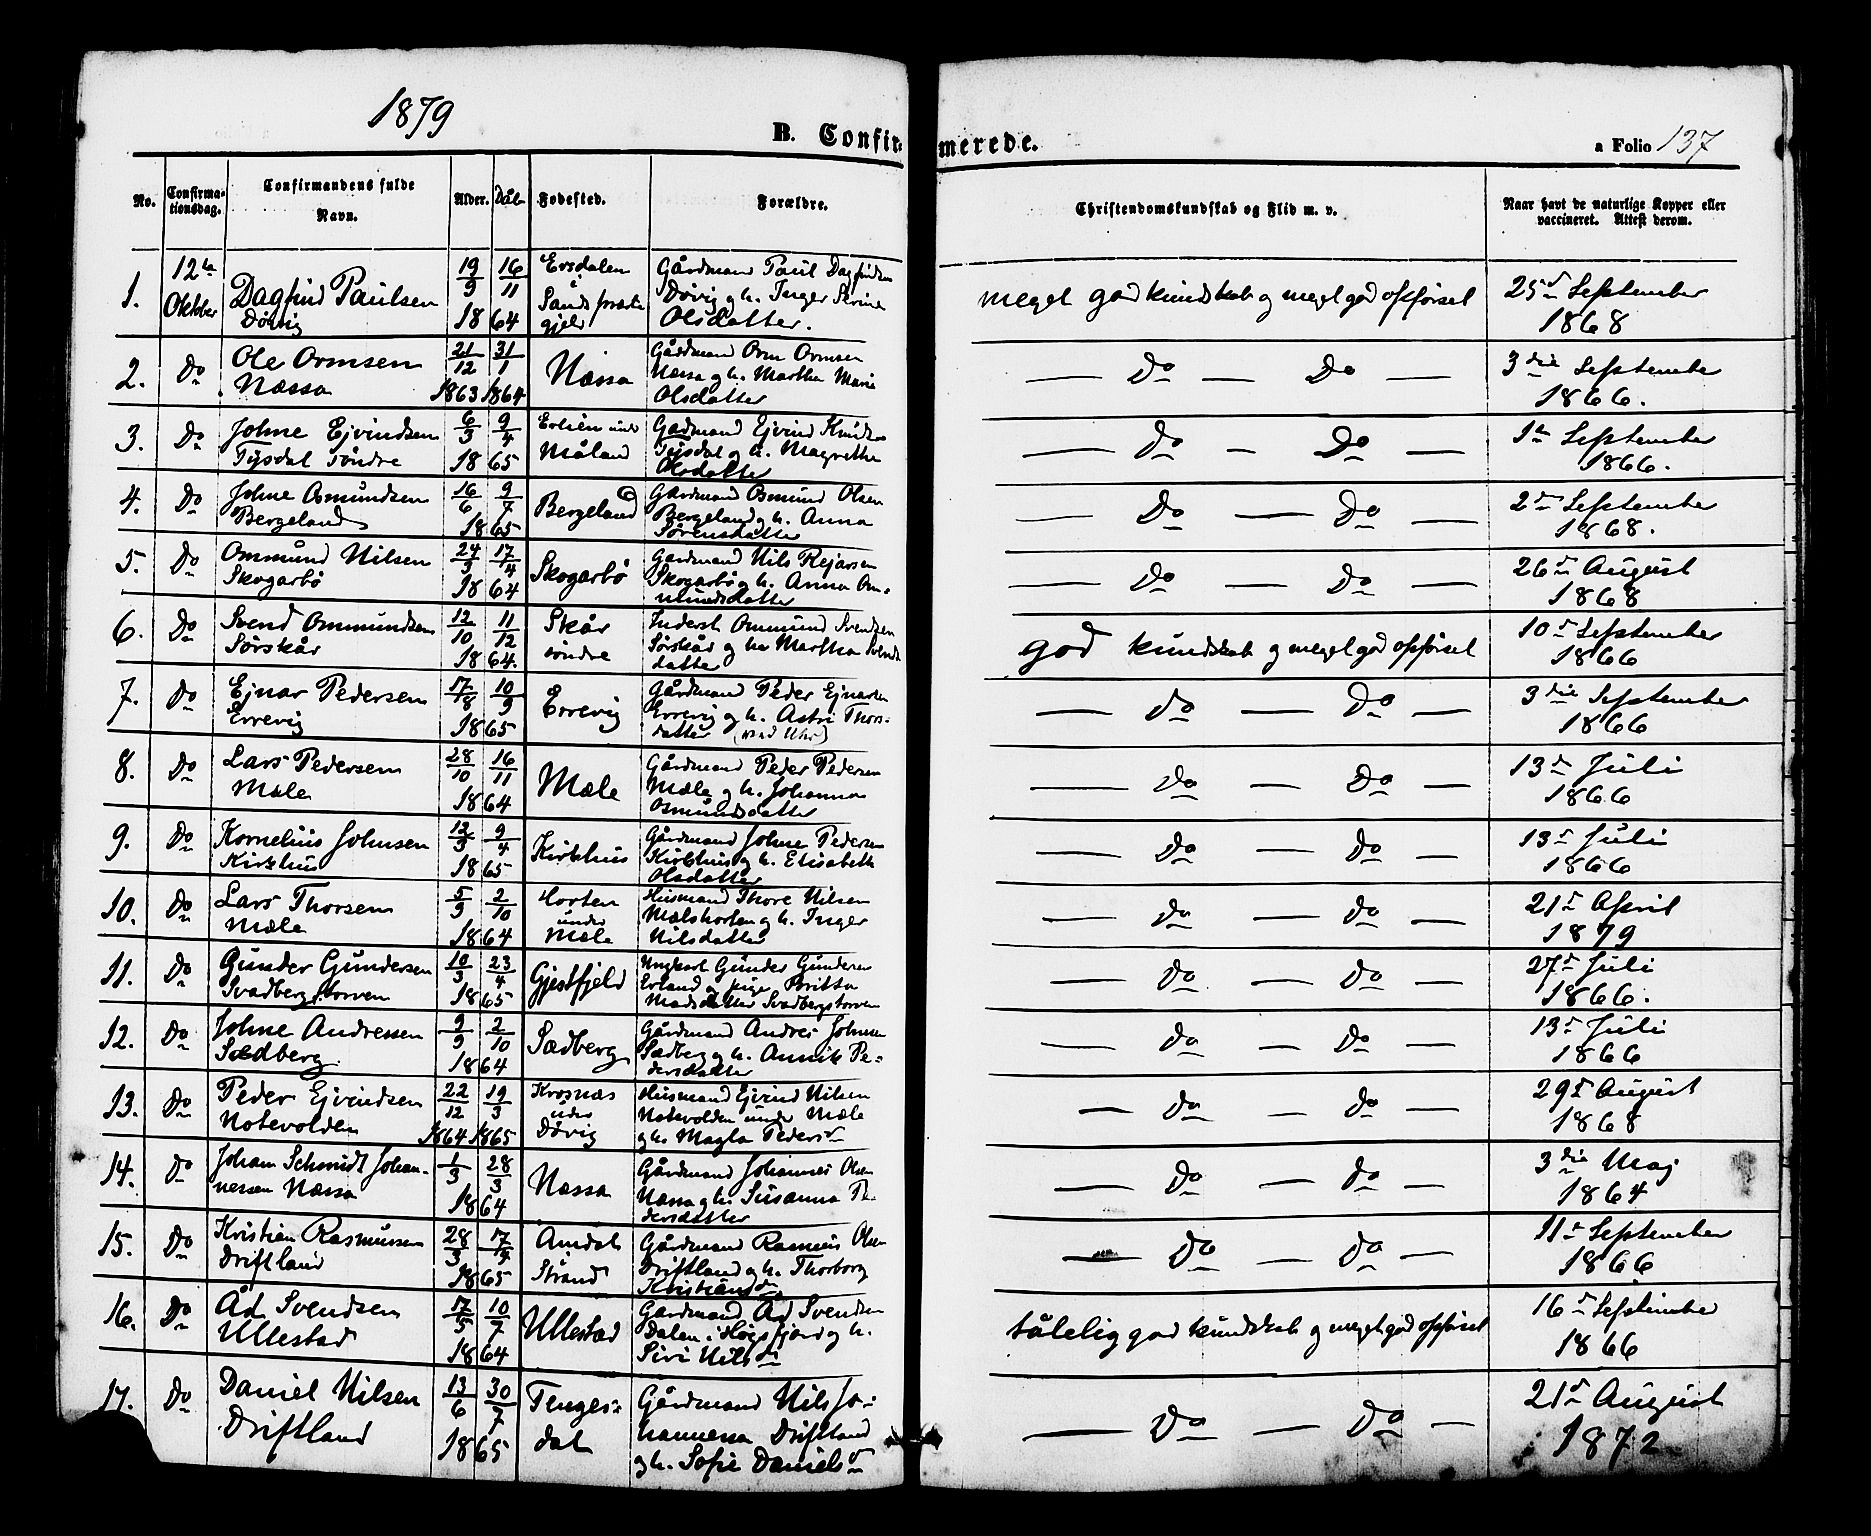 1879
B. Confirmerede.
a Folio 137
No. Confirmationsdag. Confirmandens fulde Navn. Alder. Dåb Fødested. Forældre. Christendomskundskab og Flid m. v. Naar havt de naturlige Kopper eller vaccineret. Attest derom.
1. 12te Oktober Dagfind Paulsen Døvig 19/9 16/11 1864 Ersdalen i Sands præstegjeld Gårdmand Paul Dagfindsen Døvig og h. Inger Serine Olsdatter. meget god kundskab og meget god opførsel 25de September 1868
2. Do Ole Ormsen Næssa 21/12 1863 31/1 1864 Næssa Gårdmand Orm Ormsen Næssa og h. Martha Marie Olsdatter — Do — Do — 3die September 1866.
3. Do Johne Ejvindsen Tysdal søndre 6/3 9/4 1865 Målund Gårdmand Ejvind Knudsen Tysdal og h. Magrethe Olsdatter — Do — Do — 1te September 1866.
4. Do Johne Osmundsen Bergeland 16/6 9/7 1865 Bergeland Gårdmand Osmund Olsen Bergeland og h. Anna Sørensdatter — Do — Do — 2den September 1868.
5. Do Ommund Nilsen Skogarbø 24/3 17/4 1864 Skogarbø Gårdmand Nils Rejarsen Skogarbø og h. Anna Ommundsdatter — Do — Do — 26de August 1868
6. Do Svend Ommundsen Sørskår 12/10 11/12 1864. Skår søndre Inderst Ommund Svendsen Sørskår og h. Martha Svendsdatter god kundskab og meget god opførsel 10de September 1866
7. Do Ejnar Pedersen Errevig 17/8 10/9 1865 Errevig Gårdmand Peder Ejnarsen Errevig og h. Astri Thorsdatter — Do — Do — 3die September 1866
8. Do Lars Pedersen Mæle 28/10 16/11 1864 Mæle Gårdmand Peder Pedersen Mæle og h. Johanna Osmundsdatter — Do — Do — 13de Juli 1866
9. Do Kornelius Johnsen Kirkhus 13/3 9/4 1865 Kirkhus Gårdmand Johne Pedersen Kirkhus og h. Elisabeth Olsdatter — Do — Do — 13de Juli 1866
10. Do Lars Thorsen Mæle 5/9 2/10 1864 Horten under Mæle Husmand Thore Nilsen Mælshorten og h. Inger Nilsdatter — Do — Do — 21de April 1879
11. Do Gunder Gundersen Svadbergstorven 10/3 23/4 1865 Gjestfjeld Ungkarl Gunder Gundersen Erland og pige Britta Madsdatter Svadbergstorven — Do — Do — 27de Juli 1866.
12. Do Johne Andressen Sædberg 9/9 2/10 1864 Sædberg Gårdmand Andres Johnsen Sædberg og h. Annik Pedersdatter — Do — Do — 13de Juli 1866
13. Do Peder Ejvindsen Notevolden 22/12 1864 19/3 1865 Krosnæs under Døvig Husmand Ejvind Nilsen Notevolden under Mæle og h. Magla Pedersdr — Do — Do — 29de August 1868
14. Do Johan Schmidt Johannessen Næssa 1/3 28/3 1864 Næssa Gårdmand Johannes Olsen Næssa og h. Susanna Pedersdatter — Do — Do — 3die Maj 1864
15. Do Kristian Rasmussen Driftland 28/3 17/4 1865 Amdal Strand Gårdmand Rasmus Olsen Driftland og h. Thorborg Kristiansdr — Do — Do — 11de September 1866
16. Do Åd Svendsen Ullestad 17/5 10/7 1864 Ullestad Gårdmand Åd Svendsen Dalen i Høgsfjord og h. Siri Nilsdr tålelig god kundskab og meget god opførsel 16de September 1866
17. Do Daniel Nilsen Driftland 13/6 30/7 1865 Tengesdal Gårdmand Nils Johannessen Driftland og h. Sofie Danielsdr — Do — Do — 21de August 1872